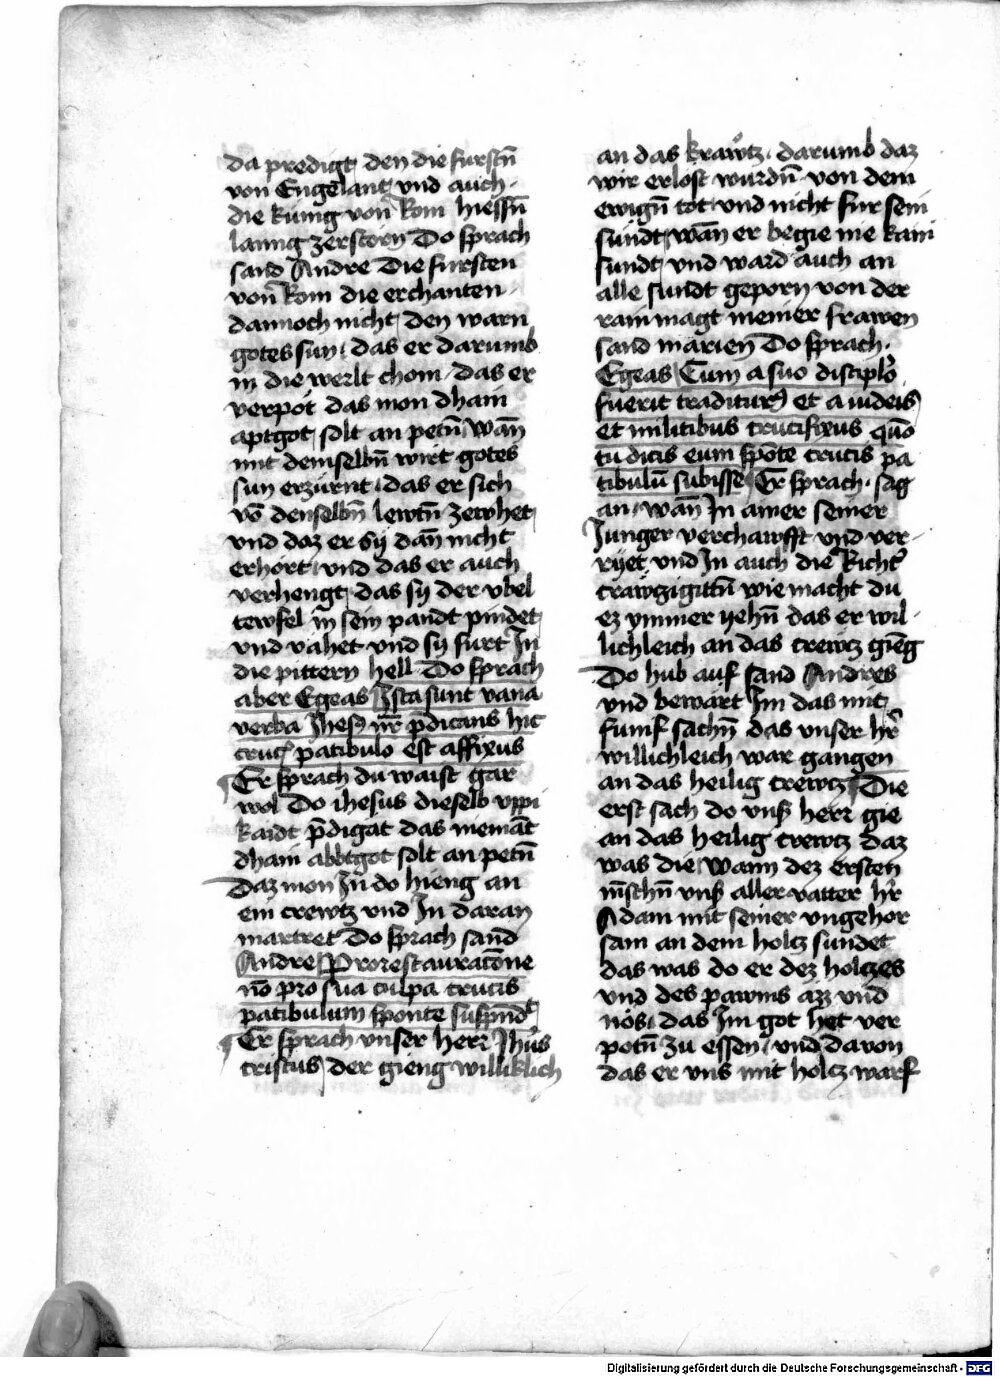 da predigt den die furstn̄
von Engelant und auch
die künig von Rom hiessn̄
lanng zerstörn Do sprach
sand Andre Die fursten
von Rom die erchanten
dannoch nicht den warn
gotes sun das er darumb
in die werlt chom das er
verpöt das mon dhain
aptgot solt an petn̄ wan̄
mit demselbn̄ wirt gotes
sun erzürnt das er sich
vō denselbn̄ lewtn̄ zewhet
und daz er sij dan̄ nicht
erhort und das er auch
verhengt das sij der vbel
tewfel in̄ sein pandt pindet
und vahet und sij furt In
die pittern hell Do sprach
aber Egeas Ista sunt vana
verba Ihesꝰ nr̄ p̄dicans hic
cruc patibulo est affixus
Er sprach du waist gar
wol Do ihesus dieselb vppi
kaidt p̄digat das nieman̄t
dhain abbtgot solt an petn̄
Daz mon In do hieng an
ein crewtz und In daran
martret Do sprach sand
Andre Pro restauracōne
nō pro sua culpa crucis
patibulum sponte suspnd
Er sprach unser herr Ihūs
cristus der gieng williklich
an das krawtz darumb daz
wir erlost wurdn̄ von dem
ewign̄ tot und nicht fur sein
sündt wan̄ er begie nie kain
sundt und ward auch an
alle sundt geporn von der
rain magt meiner frawen
sand marien Do sprach
Egeas Cum a suo discipl̄o
fuerit traditurꝰ et a iudeis
et militibus crucifixus quō
tu dicis eum spōte crucis pa
tibulū subisse Er sprach sag
an wan̄ In ainer seiner
Junger verchawfft und ver
riet und In auch die Richt
crawczigittn̄ wie macht du
ez ymmer yehn̄ das er wil
lichleich an das crewcz gieng
Do hub auf sand Andres
und bewart Im das mit
funf sachn̄ das unser hr̄
willichleich war gangen
an das heilig crewcz Die
erst sach do unß herr gie
an das heilig crewcz daz
was die Wann dez ersten
mēschn̄ unß aller vatter hr̄
Adam mit seiner ungehor
sam an dem holcz sundet
das was do er dez holczes
und des pawms azz und
nos das Im got het ver
potn̄ zu essen und davon
das er uns mit holcz warf
Digitalisierung gefördert durch die Deutsche Forschungsgemeinschaft - DFG